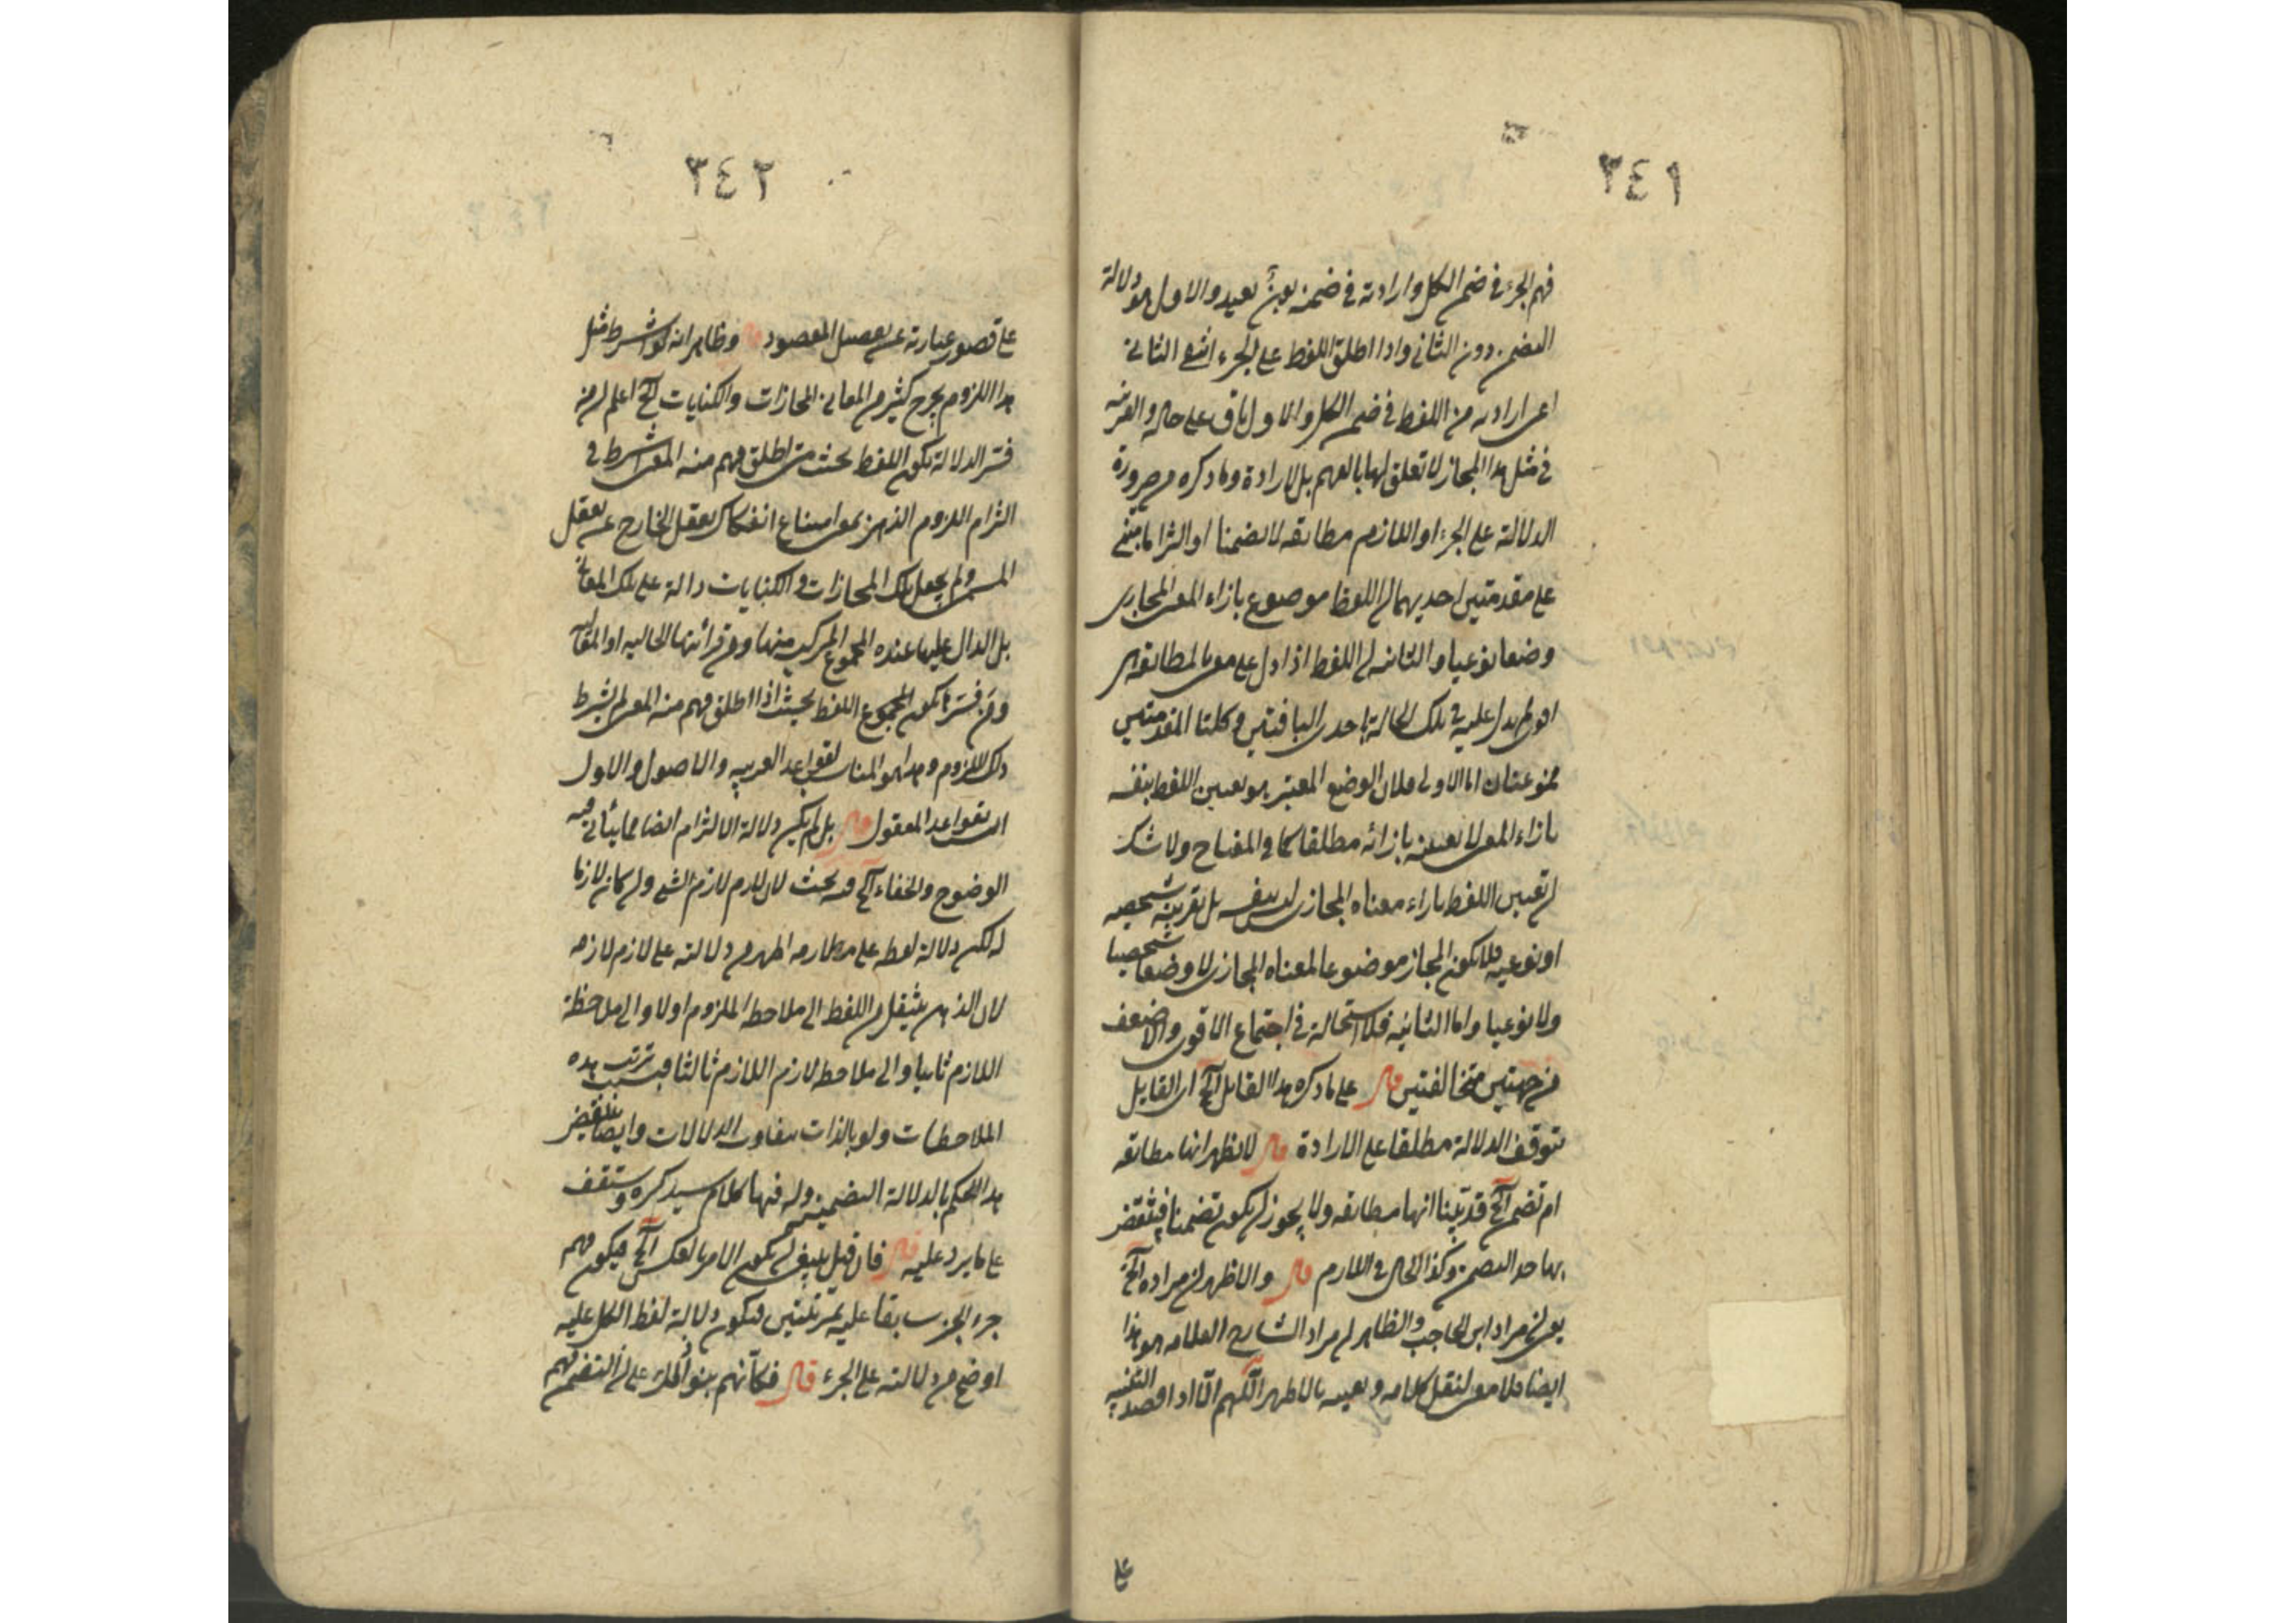 ٣٤١
فهم الجزء في ضمن الكل وارادته في ضمنه بونٌ بعيد والاول هو دلالة
التضمن دون الثاني واذا اطلق اللفظ على الجزء انتفى الثاني
اعنى ارادته من اللفظ في ضمن الكل والاول باق على حاله والقرينة
في مثل هذا المجاز لا تعلق لها بالفهم بل بالارادة وما ذكره من ضرورة
الدلالة على الجزء او اللازم مطابقة لا تضمنا او التزاما مبنى
على مقدمتين احديهما ان اللفظ موضوع بازاء المعنى المجازى
وضعا نوعيا والثانية ان اللفظ اذا دل على معنى بالمطابقة التى هى
اقوى لم يدل عليه في تلك الحالة باحدى الباقيتين وكلتا المقدمتين
ممنوعتان اما الاولى فلان الوضع المعتبر هو تعيين اللفظ بنفسه
بازاء المعنى لا تعيينه بازائه مطلقا كما في المفتاح ولا شك
ان تعيين اللفظ بازاء معناه المجازى ليس بنفسه بل بقرينة شخصية
او نوعية فلا يكون المجاز موضوعا لمعناه المجازى لا وضعا شخصيا
ولا نوعيا واما الثانية فلا استحالة في اجتماع الاقوى والاضعف
من جهتين متخالفتين قال على ما ذكره هذا القايل آلخ اى القايل
بتوقف الدلالة مطلقا على الارادة قال لا يظهر انها مطابقة
ام تضمن آلخ قد بيّنا انها مطابقة ولا يجوز ان يكون تضمنا فينتقض
بها حد التضمن وكذا الحال في اللازم قال والاظهر ان مراده آلخ
يعنى ان مراد ابن الحاجب والظاهر ان مراد الشارح العلامه هو هذا
ايضا فلا معنى لنقل كلامه وتعقيبه بالاظهر اللّهم الّا اذا قصد التنبيه
على
٣٤٢
على قصور عبارته عن تحصيل المقصود قال وظاهر انه لو اشترط مثل
هذا اللزوم يخرج كثير من المعانى المجازات والكنايات آلخ اعلم ان من
فسّر الدلالة بكون اللفظ بحيث متى اطلق فهم منه المعنى اشترط في
التزام اللزوم الذهنى بمعنى امتناع انفكاك تعقل الخارج عن تعقل
المسمى ولم يجعل تلك المجازات والكنايات دالة على تلك المعانى
بل الدال عليها عنده المجموع المركب منها ومن قرائنها الحالية او المقالية
ومن فسّرها بكون المجموع اللفظ بحيث اذا اطلق فهم منه المعنى لم يشترط
ذلك اللزوم وهذا هو المناسب لقواعد العربية والاصول والاول
انسب بقواعد المعقول قال بل لم يكن دلالة الالتزام ايضا مما يتأتى فيه
الوضوح والخفاء آلخ فيه بحث لان لازم لازم الشئ وان كان لازما
له لكن دلالة لفظه على لازمه اظهر من دلالته على لازم لازمه
لان الذهن ينتقل من اللفظ الى ملاحظة الملزوم اولا والى ملاحظة
اللازم ثانيا والى ملاحظة لازم اللازم ثالثا فبسبب ترتب هذه
الملاحظات ولو بالذات يتفاوت الدلالات وايضا ينتقض
هذا الحكم بالدلالة التضمنية وله فيها كلام سيذكره وستقف
على ما يرد عليه قال فان قيل ينبغى ان يكون الامر بالعكس آلخ فيكون فهم
جزء الجزء سابقا عليه بمرتبتين فيكون دلالة لفظ الكل عليه
اوضح من دلالته على الجزء قال فكأنهم بنوا ذلك على ان التضمن فهم